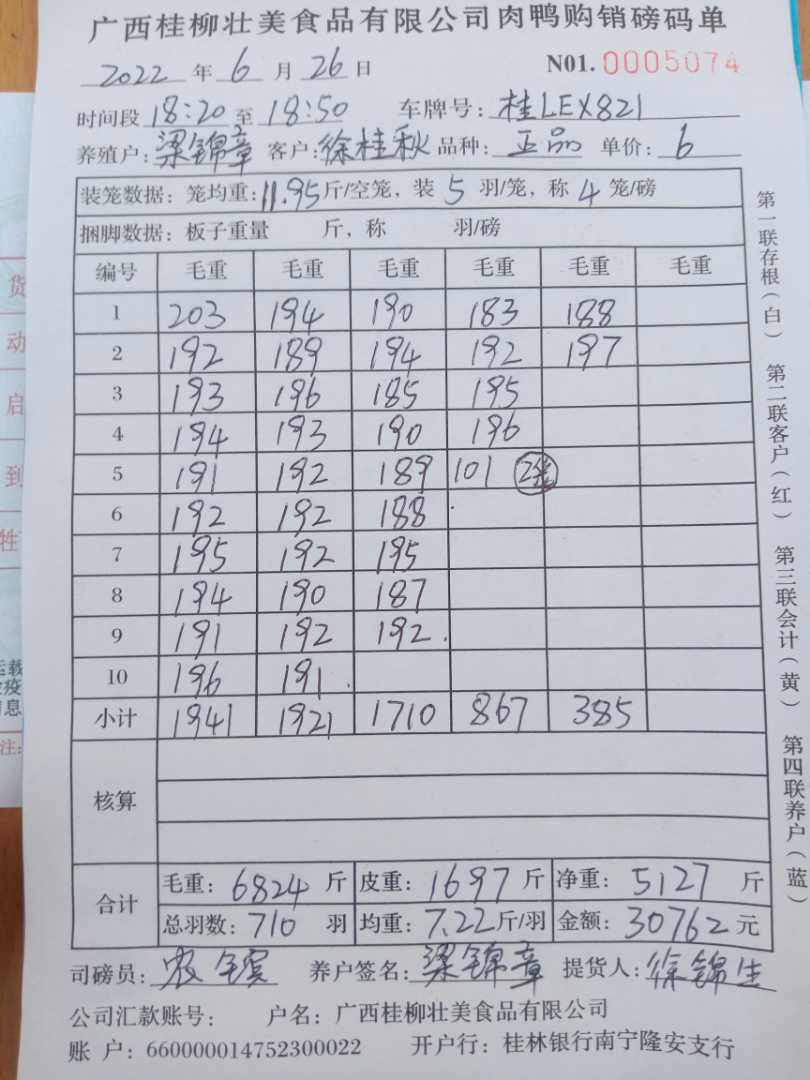 广西桂柳壮美食品有限公司肉鸭购销磅码单
2022 年 6 月 26 日 N01. 0005074
时间段 18:20 至 18:50 车牌号: 桂LEX821
养殖户: 梁锦章 客户: 徐桂秋 品种: 正品 单价: 6
装笼数据: 笼均重: 11.95 斤/空笼, 装 5 羽/笼, 称 4 笼/磅
捆脚数据: 板子重量 斤, 称 羽/磅
编号 毛重 毛重 毛重 毛重 毛重 毛重
1 203 194 190 183 188
2 192 189 194 192 197
3 193 196 185 195
4 194 193 190 196
5 191 192 189 101 2笼
6 192 192 188
7 195 192 195
8 194 190 187
9 191 192 192
10 196 191
小计 1941 1921 1710 867 385
核算
合计 毛重: 6824 斤 皮重: 1697 斤 净重: 5127 斤
总羽数: 710 羽 均重: 7.22 斤/羽 金额: 30762 元
司磅员: 农 养户签名: 梁锦章 提货人: 徐锦生
公司汇款账号: 户名: 广西桂柳壮美食品有限公司
账 户: 660000014752300022 开户行: 桂林银行南宁隆安支行
第一联存根(白) 第二联客户(红) 第三联会计(黄) 第四联养户(蓝)
货
动
启
到
牲
运载
疫
息
注: